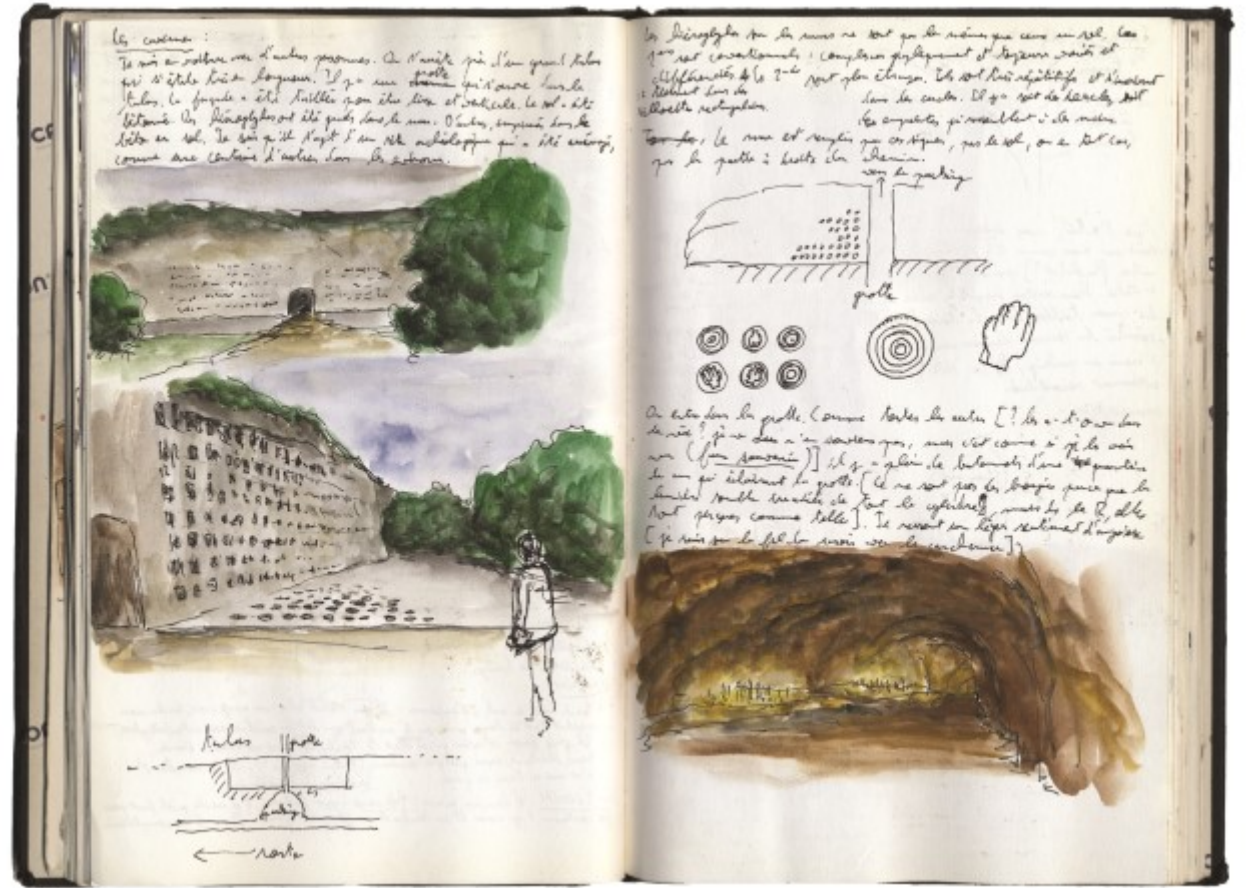 Les cavernes :
Je suis en voiture avec d'autres personnes. On s'arrête près d'un grand talus
qui s'étale très en longueur. Il y a une grotte qui s'ouvre dans le
talus. La façade a été taillée pour être lisse et verticale. Le sol a été
bétonné. Des hiéroglyphes ont été gravés dans le mur. D'autres, dans le
béton au sol. Je sais qu'il s'agit d'un site archéologique qui a été aménagé,
comme une centaine d'autres dans les environs.
talus grotte
parking
route
Les hiéroglyphes sur les murs ne sont pas les mêmes que ceux au sol. Les
sont conventionnels : complexes graphiquement et toujours variés et
différenciés. Les sont plus étranges. Ils sont très répétitifs et s'inscrivent
dans des cercles. Il y a soit des cercles, soit
rectangulaires.
des empreintes qui ressemblent à des mains.
Le mur est rempli par ces signes, pas le sol, ou en tout cas,
pas la partie à droite du chemin.
vers le parking
grotte
On entre dans la grotte. Comme toutes les autres [? les a-t-on vu dans
le rêve, je ne m'en souviens pas, mais c'est comme si je les avais
vus (faux souvenir)] il y a plein de d'une
qui éclairent la grotte. [Ce ne sont pas des bougies parce que la
lumière semble de tout le cylindre, mais
sont perçues comme telle]. Je ressent un léger sentiment d'angoisse
[je suis sur le fil du rasoir vers le cauchemar]